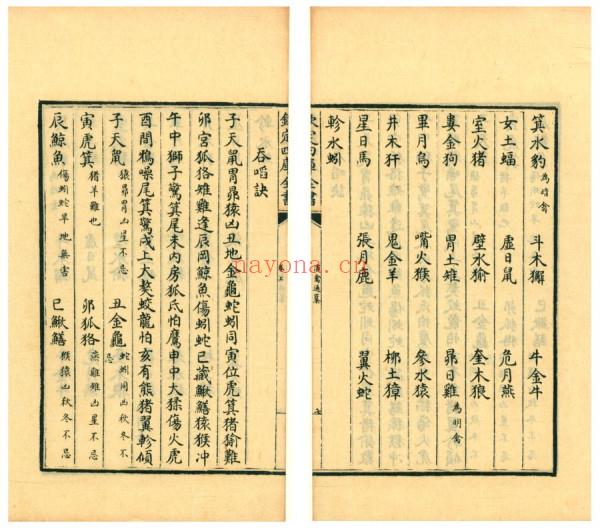 箕水豹為暗禽 斗木獬 牛金牛
女土蝠 虛日鼠 危月燕
室火猪 壁水㺄 奎木狼
婁金狗 胃土雉 昴日雞為明禽
畢月烏 嘴火猴 參水猿
井木犴 鬼金羊 柳土獐
星日馬 張月鹿 翼火蛇
軫水蚓
欽定四庫全書
卷上
吞啗訣
子天鼠胃昴猿凶丑地金龜蛇蚓同寅位虎箕猪㺄難
卯宮狐狢雉雞逢辰岡鯨魚傷蚓蛇巳藏鰍鱔猿猴冲
午中獅子驚箕尾未内房狐氐怕鷹申中大猱傷火虎
酉間鵂噪尾箕驚戌上大獒蛟龍怕亥有熊猪翼軫傾
子天鼠猿昴胃凶星不忌 丑金龜蛇蚓同凶秋冬不忌
寅虎箕猪羊雞也 卯狐狢燕雞雉凶星不忌
辰鯨魚傷蚓蛇旱地無害 巳鰍鱔猴猿凶秋冬不忌
nayona.cn